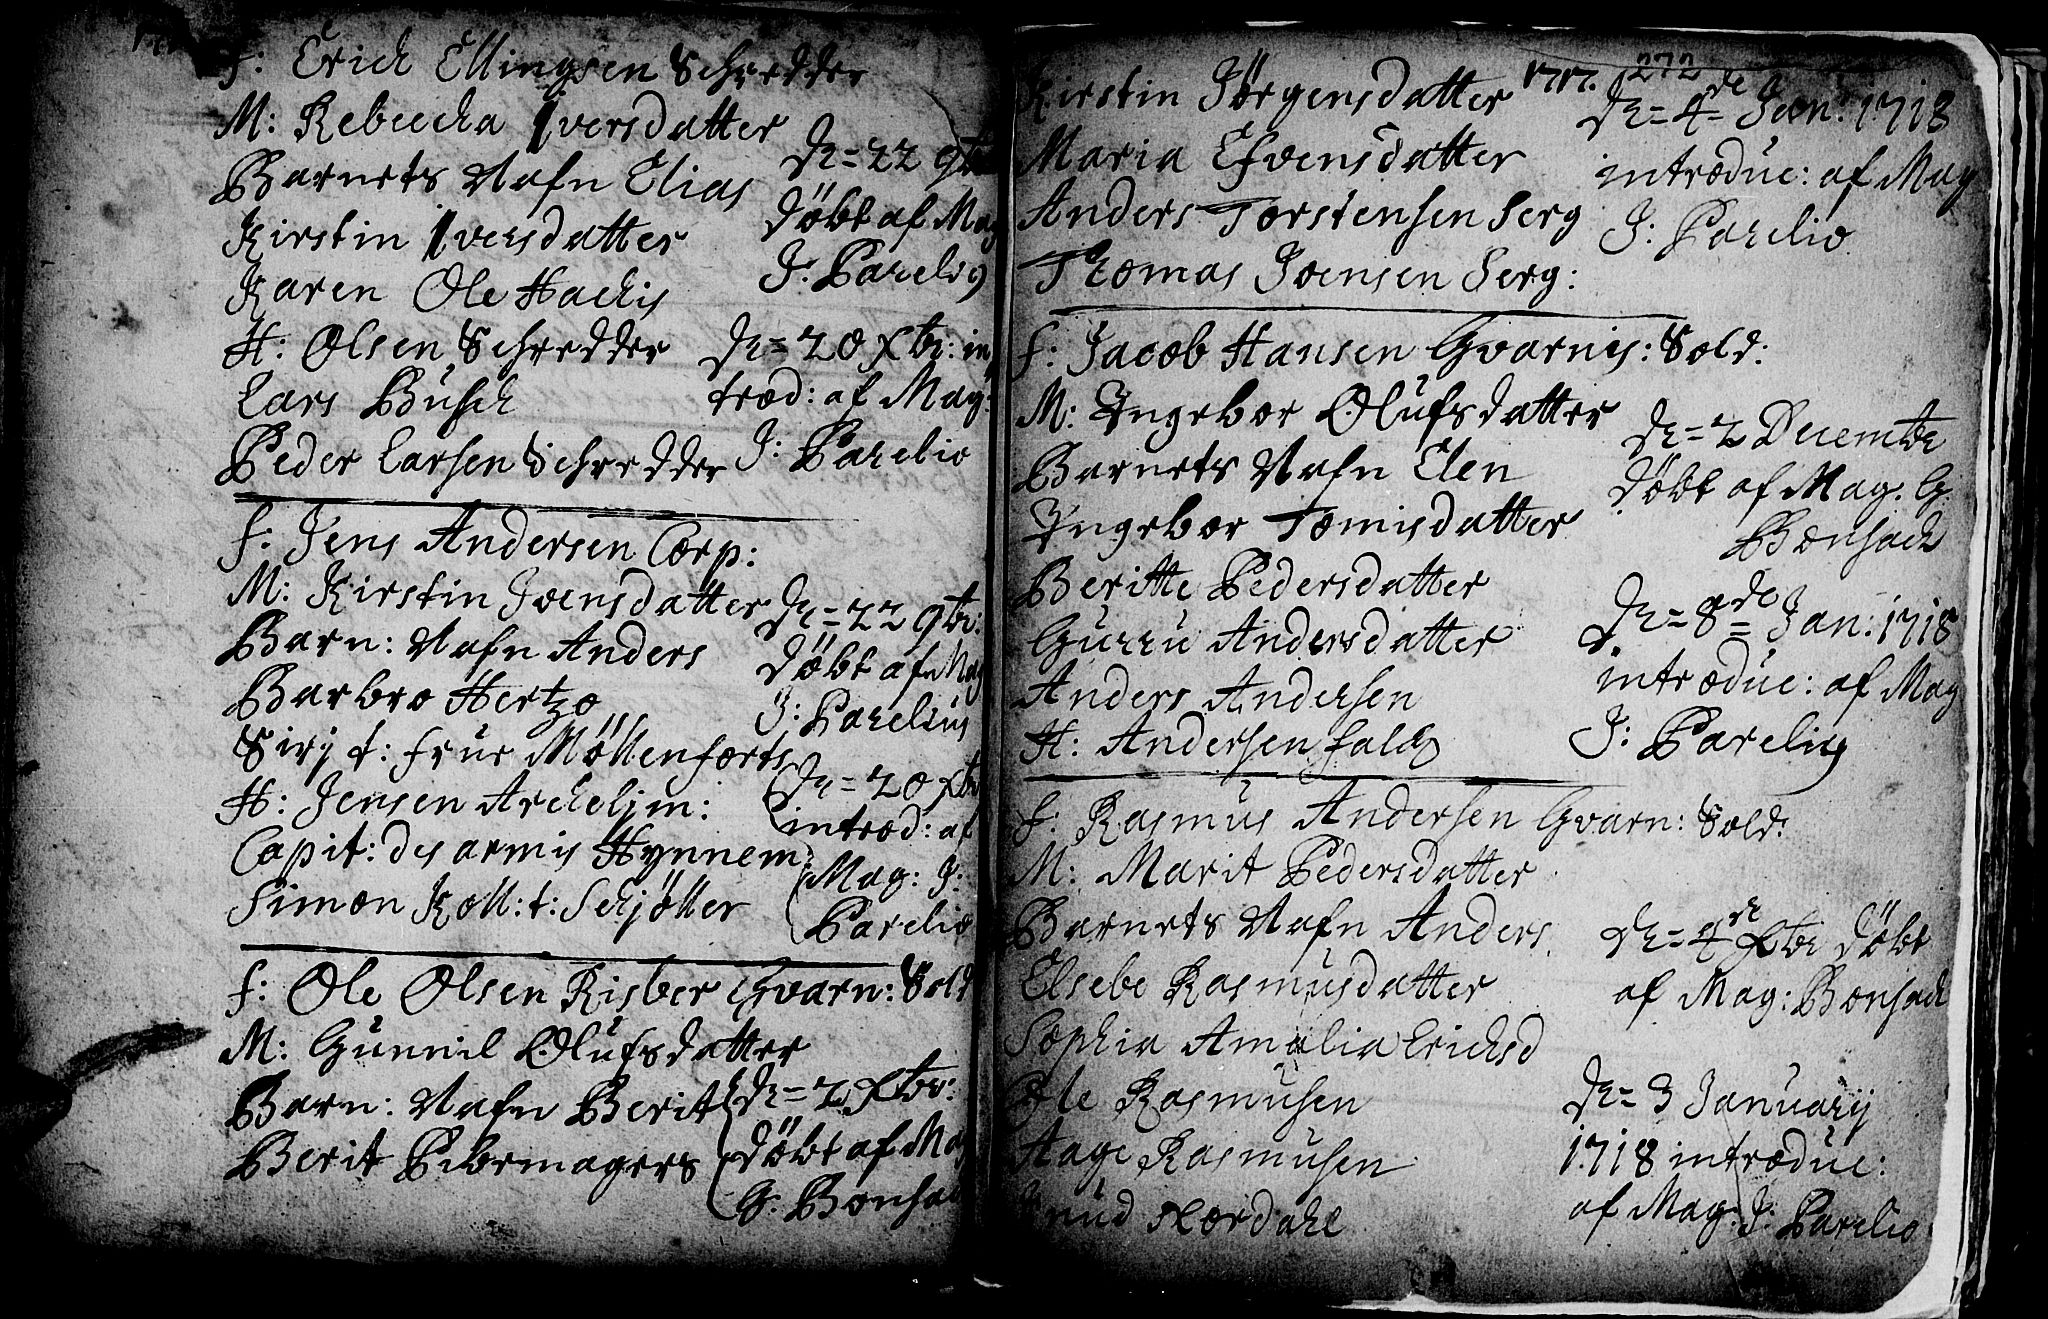 F: Erich Ellingsen Schredder
M: Rebecka Iversdatter
Barnets Nafn Elias
Kirstin Iversdatter
Karen Ole Hackis
H: Olsen Schredder
Lars Busch
Peder Larsen Schredder
D: = 22 9br
döbt af Mag
J: Parelio
D: = 20 Xbr: in
trod: af Mag:
J: Parelio
F: Jens Andersen Corp:
M: Kirstin Joensdatter
Barn: Nafn Anders
Barbro Hertzo
Sirj t: Frue Möllenforts
H: Jensen Arckeljm:
Capit: des armis Hynnem
Simon Koll: t: Schjöller
D: = 22 9br:
döbt af Mag
J: Parelius
D: = 20 Xbr
introd: af
Mag: J:
Parelio
F: Ole Olsen Risber Gvarn: Sold
M: Gunnil Olufsdatter
Barn: Nafn Berit
Berit Pibermagers
D: = 2 Xbr:
döbt af Mag
G. Bonsac
1717. 272
Kirstin Jörgensdatter
Maria Esvensdatter
Anders Torstensen Serg
Thomas Joensen Serg:
D: = 4de Jan: 1718
introduc: af Mag
J: Parelio
F: Jacob Hansen Gvarnis: Sold:
M: Ingebor Olufsdatter
Barnets Nafn Elen
Ingebor Tomisdatter
Beritte Pedersdatter
Gurru Andersdatter
Anders Andersen
H: Andersen Falch
D: = 2 Decembr
döbt af Mag. G.
Bonsach
D: = 8de Jan: 1718
introduc: af Mag
J: Parelio
F: Rasmus Andersen Gvarn: Sold:
M: Marit Pedersdatter
Barnets Nafn Anders
Elsebe Rasmusdatter
Sophia Amalia Ericksd
Ole Rasmusen
Aage Rasmusen
Knud Nordahl
D: = 4de Xbr döbt
af Mag: Bonsach
D: = 3 Januarij
1718 introduc:
af Mag: J: Parelio